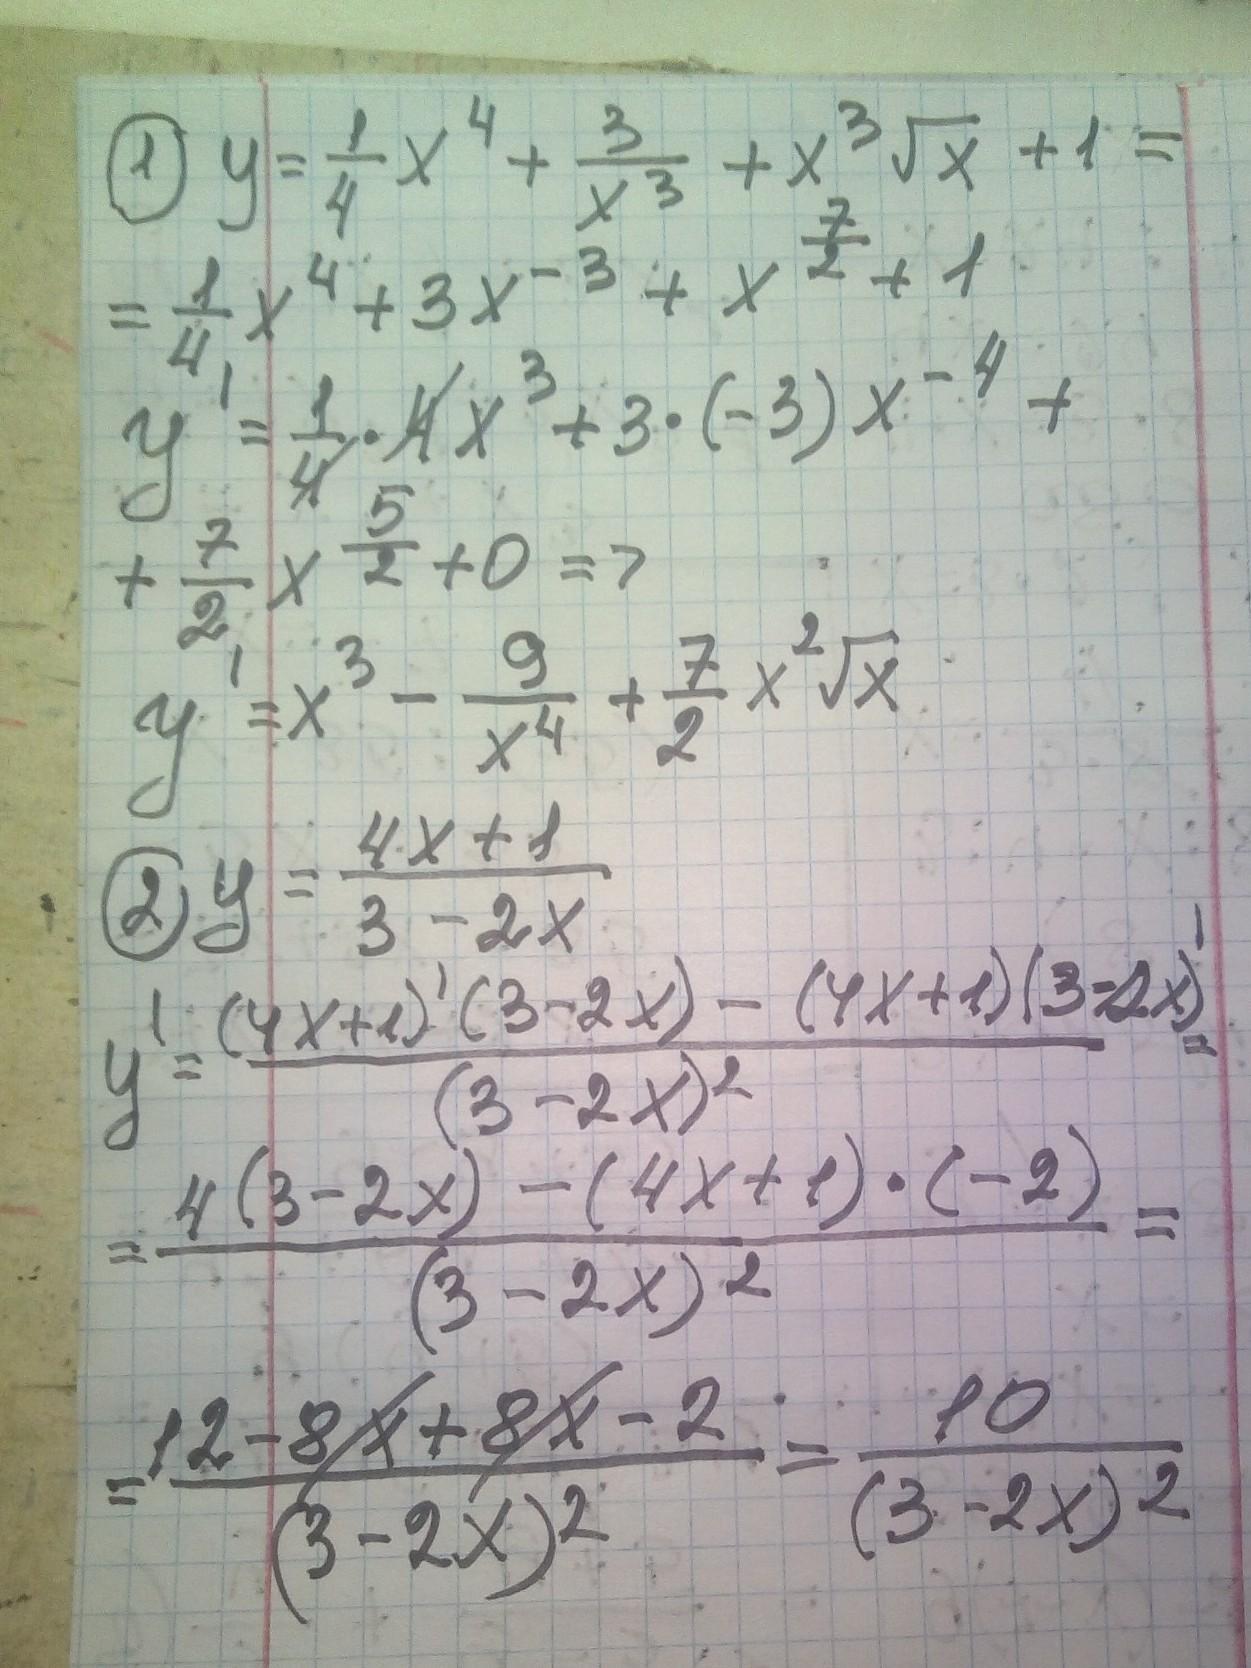 ① y = 1/4 x⁴ + 3/x³ + x³√x + 1 =
= 1/4 x⁴ + 3x⁻³ + x^(7/2) + 1
y' = 1/4 · 4x³ + 3 · (-3)x⁻⁴ +
+ 7/2 x^(5/2) + 0 =>
y' = x³ - 9/x⁴ + 7/2 x²√x
② y = (4x+1)/(3-2x)
y' = ((4x+1)'(3-2x) - (4x+1)(3-2x)')/(3-2x)² =
= (4(3-2x) - (4x+1)·(-2))/(3-2x)² =
= (12-8x+8x-2)/(3-2x)² = 10/(3-2x)²